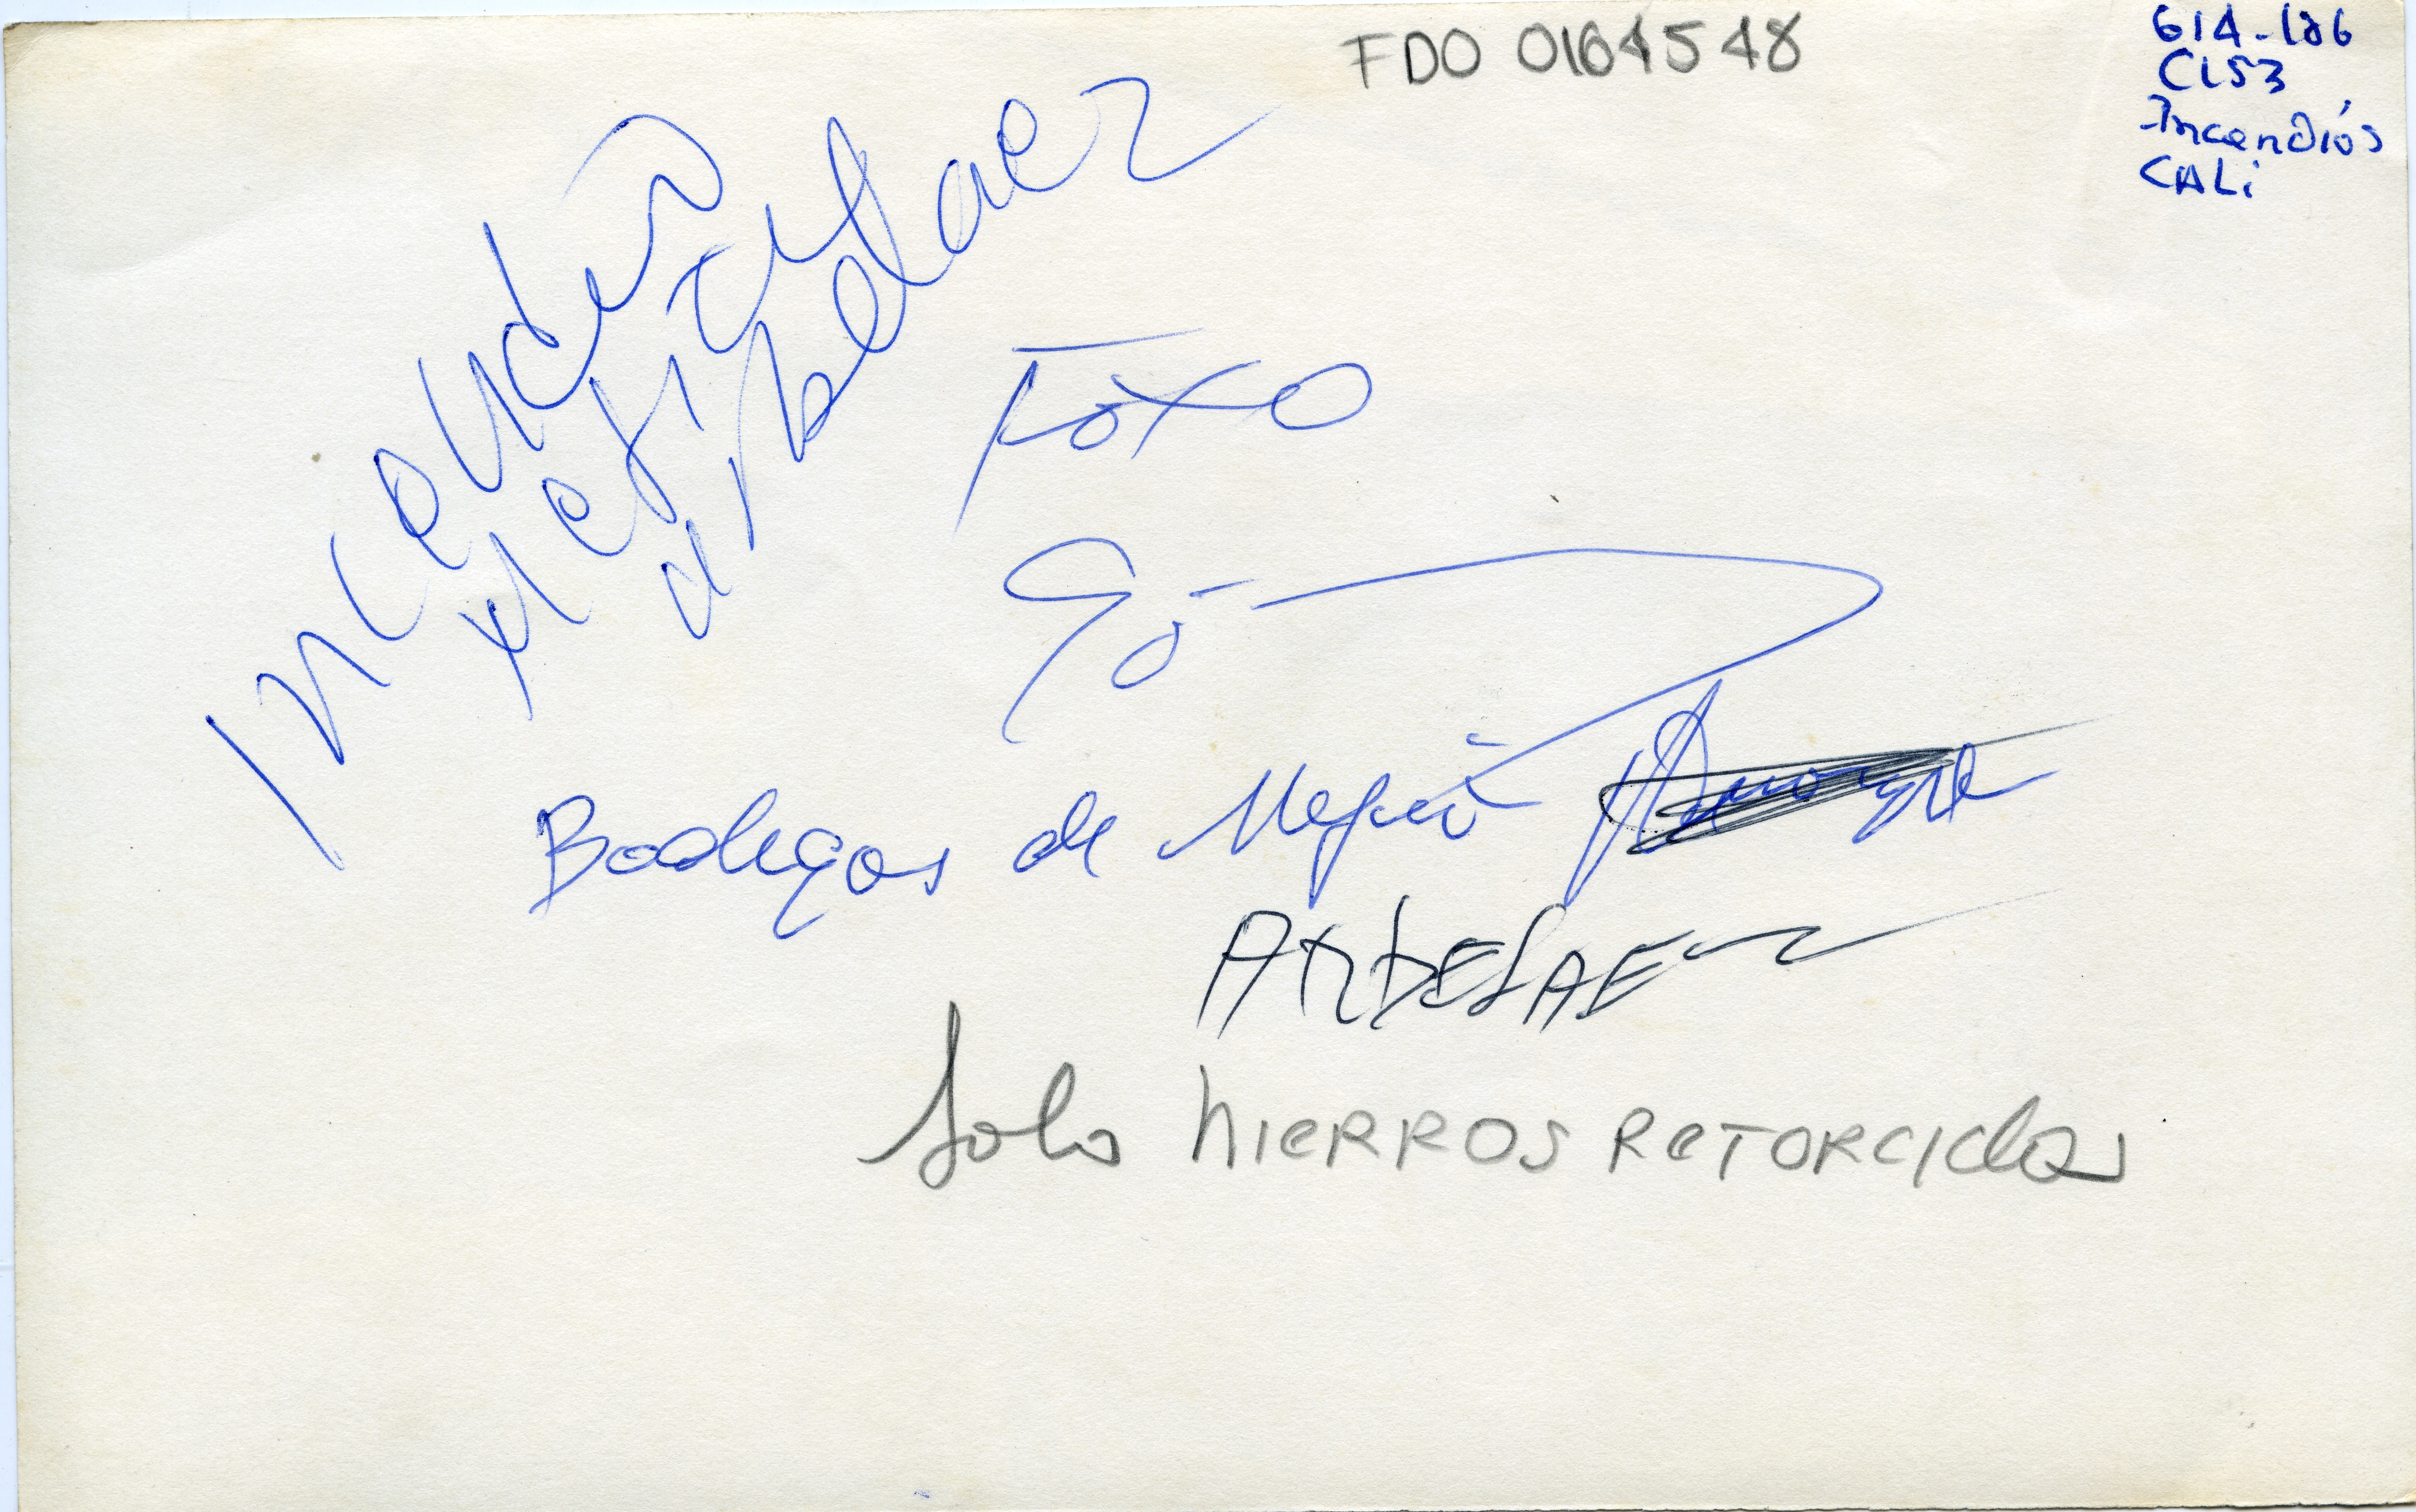 FDO 0164548
614-186
CL53
Incendiós
CALi
incendio
Mefiat
Arbelaez
Foto
Bodegas de Mejia
ARBELAEZ
Solo hieRROS ReTORCidos